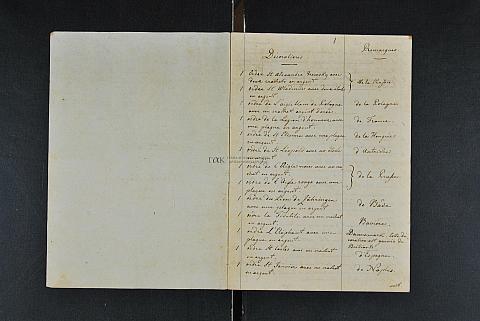 1
Décorations
Remarques
1 Ordre St Alexandre Newsky avec
deux crachats en argent
de la Russie
1 ordre St Wladimir avec deux
en argent
1 ordre de l'aigle blanc de Pologne
avec un crachat argent
de la Pologne
1 ordre de la Legion d'honneur avec
une plaque en argent.
de France
1 ordre de St Etienne avec une plaque
en argent
de la Hongrie
1 ordre de St Leopold avec
en argent
d'Autriche
1 ordre de l'Aigle noir avec un
crachat en argent
de la Prusse
1 ordre de l'Aigle rouge avec une
plaque en argent.
1 ordre du Lion de Zähringen
avec une plaque en argent
de Bade
1 ordre la Fidélité avec un crachat
en argent.
Bavière
1 ordre L'Elephant avec une
plaque en argent.
Dannemark,
est garnie de
Brillants
1 ordre St Carlos avec un crachat
en argent.
d'Espagne
1 ordre St Janvier avec un crachat
en argent.
de Naples.